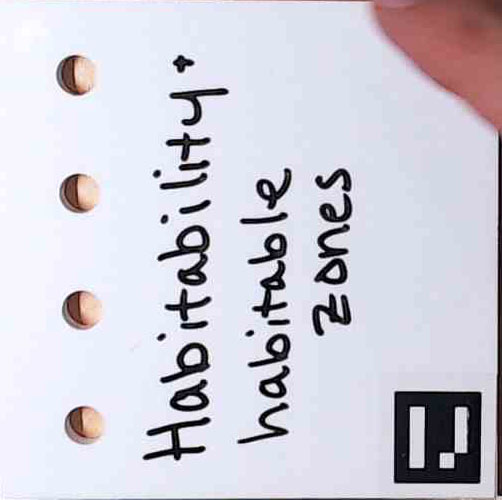 Habitability +
habitable
zones